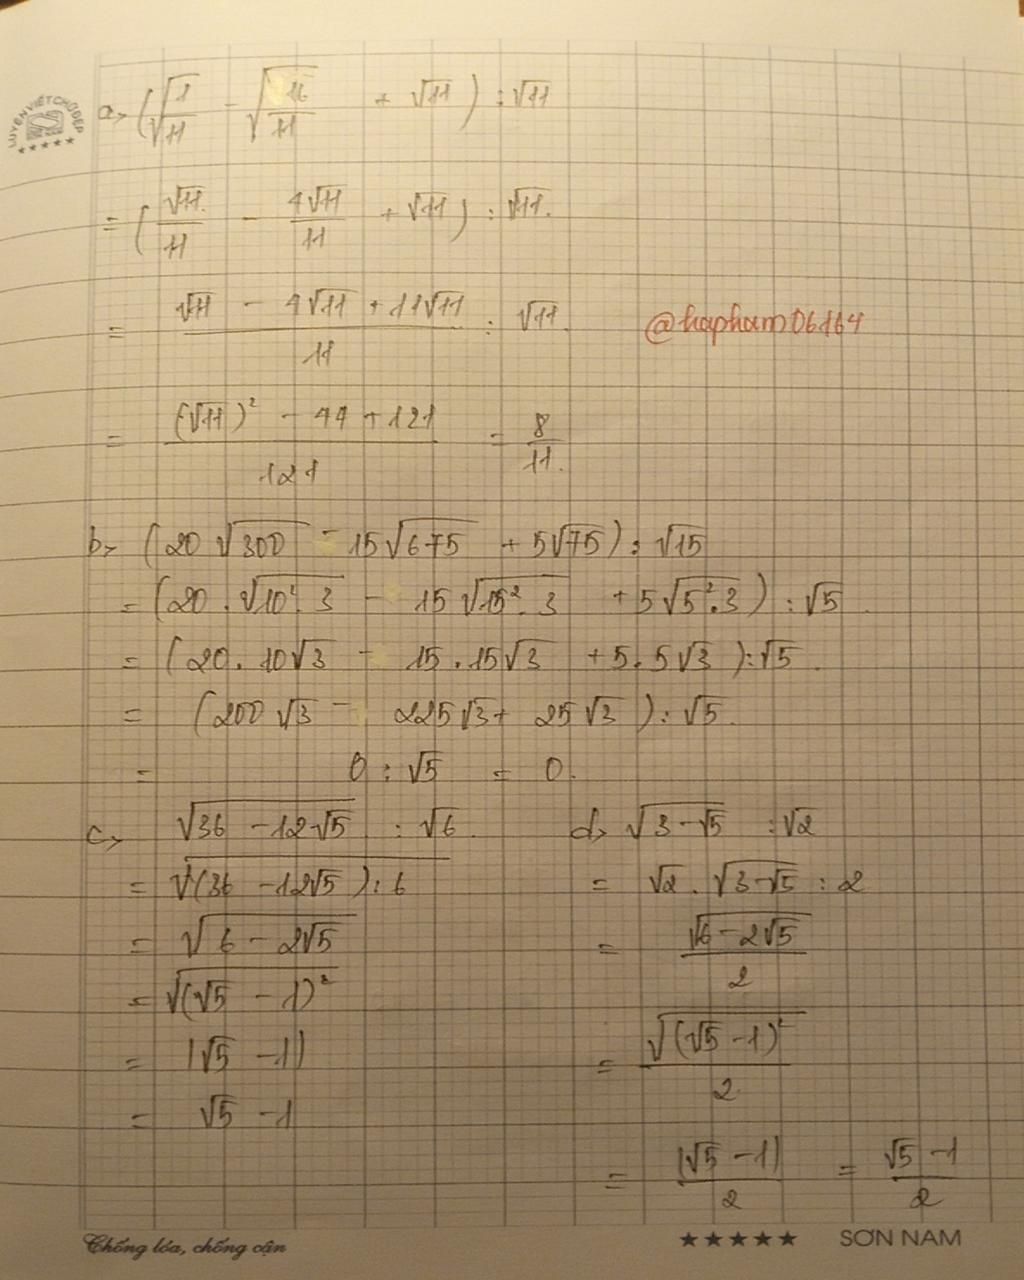 LUYỆN VIẾT CHỮ ĐẸP
a> (√(1/11) - √(16/11) + √11) : √11
= (√11/11 - 4√11/11 + √11) : √11.
= (√11 - 4√11 + 11√11)/11 : √11.
@hapham06164
= ((√11)² - 44 + 121)/121 = 8/11.
b> (20√300 - 15√675 + 5√75) : √15
= (20.√(10².3) - 15√(15².3) + 5√(5².3)) : √5.
= (20.10√3 - 15.15√3 + 5.5√3) : √5.
= (200√3 - 225√3 + 25√3) : √5.
= 0 : √5 = 0.
c> √(36 - 12√5) : √6.
= √((36 - 12√5) : 6)
= √(6 - 2√5)
= √((√5 - 1)²)
= |√5 - 1|
= √5 - 1
d> √(3 - √5) : √2
= √2 . √(3 - √5) : 2
= √(6 - 2√5)/2
= √((√5 - 1)²)/2
= |√5 - 1|/2 = (√5 - 1)/2
Chống lóa, chống cận
★★★★★ SƠN NAM